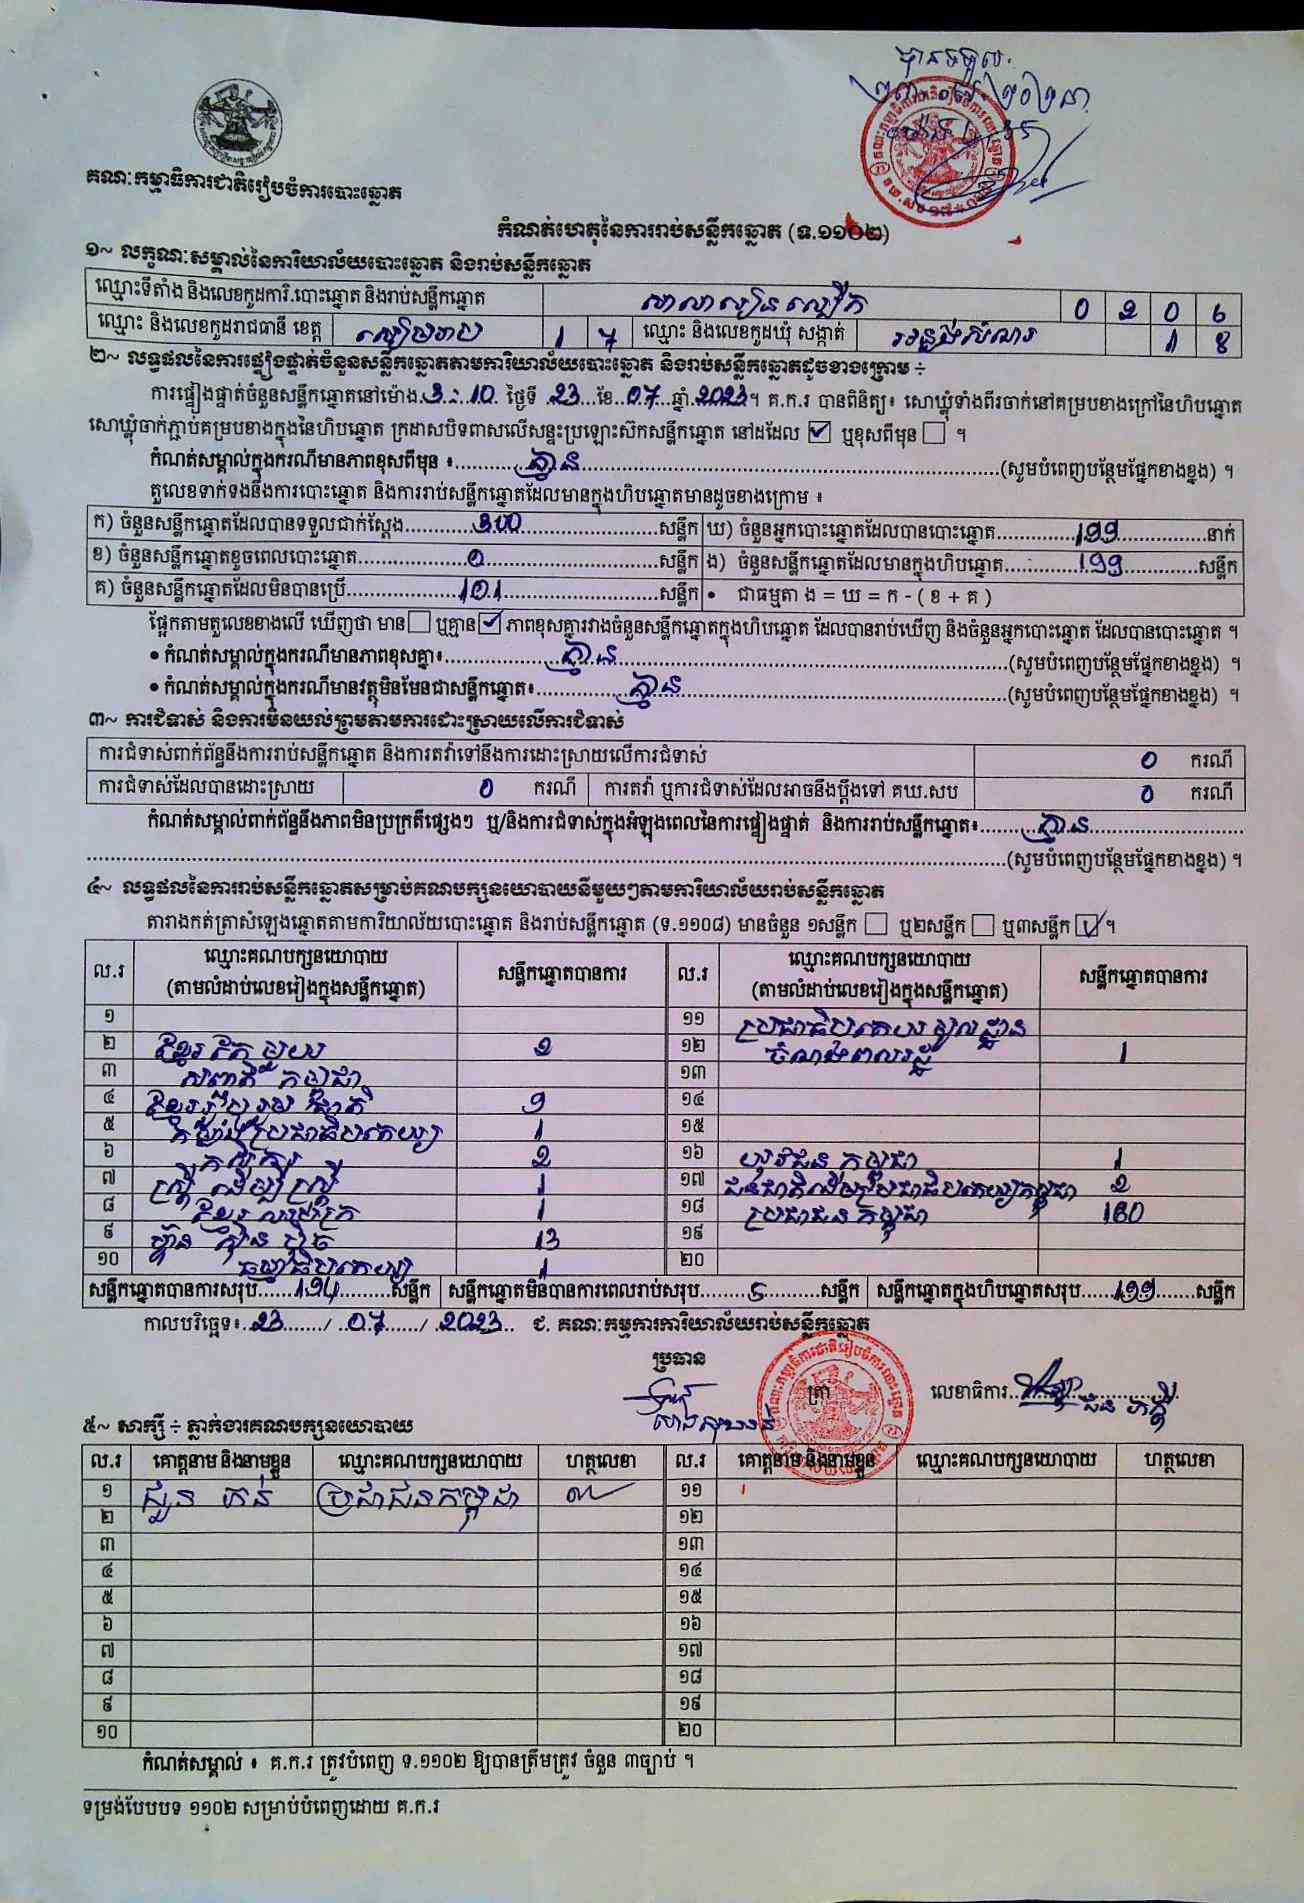 បានទទួល
គណៈកម្មាធិការជាតិរៀបចំការបោះឆ្នោត
កំណត់ហេតុនៃការរាប់សន្លឹកឆ្នោត (ទ.១១០២)
១~ លក្ខណៈសម្គាល់នៃការិយាល័យបោះឆ្នោត និងរាប់សន្លឹកឆ្នោត
ឈ្មោះទីតាំង និងលេខកូដការិ.បោះឆ្នោត និងរាប់សន្លឹកឆ្នោត 0 2 0 6
ឈ្មោះ និងលេខកូដរាជធានី ខេត្ត សៀមរាប 1 7 ឈ្មោះ និងលេខកូដឃុំ សង្កាត់ អន្លង់សំណរ 1 8
២~ លទ្ធផលនៃការផ្ទៀងផ្ទាត់ចំនួនសន្លឹកឆ្នោតតាមការិយាល័យបោះឆ្នោត និងរាប់សន្លឹកឆ្នោតដូចខាងក្រោម ÷
ការផ្ទៀងផ្ទាត់ចំនួនសន្លឹកឆ្នោតនៅម៉ោង 3:10 ថ្ងៃទី 23 ខែ 07 ឆ្នាំ 2023។ គ.ក.រ បានពិនិត្យ៖ សោឃ្លុំទាំងពីរចាក់នៅគម្របខាងក្រៅនៃហិបឆ្នោត
សោឃ្លុំចាក់ភ្ជាប់គម្របខាងក្នុងនៃហិបឆ្នោត ក្រដាសបិទពាសលើសន្ទះប្រឡោះស៊កសន្លឹកឆ្នោត នៅដដែល ☑ ឬខុសពីមុន ☐ ។
កំណត់សម្គាល់ក្នុងករណីមានភាពខុសពីមុន ៖ គ្មាន (សូមបំពេញបន្ថែមផ្នែកខាងខ្នង) ។
តួលេខទាក់ទងនឹងការបោះឆ្នោត និងការរាប់សន្លឹកឆ្នោតដែលមានក្នុងហិបឆ្នោតមានដូចខាងក្រោម ៖
ក) ចំនួនសន្លឹកឆ្នោតដែលបានទទួលជាក់ស្តែង 300 សន្លឹក ឃ) ចំនួនអ្នកបោះឆ្នោតដែលបានបោះឆ្នោត 199 នាក់
ខ) ចំនួនសន្លឹកឆ្នោតខូចពេលបោះឆ្នោត 0 សន្លឹក ង) ចំនួនសន្លឹកឆ្នោតដែលមានក្នុងហិបឆ្នោត 199 សន្លឹក
គ) ចំនួនសន្លឹកឆ្នោតដែលមិនបានប្រើ 101 សន្លឹក • ជាធម្មតា ង = ឃ = ក - ( ខ + គ )
ផ្អែកតាមតួលេខខាងលើ ឃើញថា មាន ☐ ឬគ្មាន ☑ ភាពខុសគ្នារវាងចំនួនសន្លឹកឆ្នោតក្នុងហិបឆ្នោត ដែលបានរាប់ឃើញ និងចំនួនអ្នកបោះឆ្នោត ដែលបានបោះឆ្នោត ។
• កំណត់សម្គាល់ក្នុងករណីមានភាពខុសគ្នា៖ គ្មាន (សូមបំពេញបន្ថែមផ្នែកខាងខ្នង) ។
• កំណត់សម្គាល់ក្នុងករណីមានវត្ថុមិនមែនជាសន្លឹកឆ្នោត៖ គ្មាន (សូមបំពេញបន្ថែមផ្នែកខាងខ្នង) ។
៣~ ការជំទាស់ និងការមិនយល់ព្រមតាមការដោះស្រាយលើការជំទាស់
ការជំទាស់ពាក់ព័ន្ធនឹងការរាប់សន្លឹកឆ្នោត និងការតវ៉ាទៅនឹងការដោះស្រាយលើការជំទាស់ 0 ករណី
ការជំទាស់ដែលបានដោះស្រាយ 0 ករណី ការតវ៉ា ឬការជំទាស់ដែលអាចនឹងប្តឹងទៅ គឃ.សប 0 ករណី
កំណត់សម្គាល់ពាក់ព័ន្ធនឹងភាពមិនប្រក្រតីផ្សេងៗ ឬ/និងការជំទាស់ក្នុងអំឡុងពេលនៃការផ្ទៀងផ្ទាត់ និងការរាប់សន្លឹកឆ្នោត៖ គ្មាន
(សូមបំពេញបន្ថែមផ្នែកខាងខ្នង) ។
៤~ លទ្ធផលនៃការរាប់សន្លឹកឆ្នោតសម្រាប់គណបក្សនយោបាយនីមួយៗតាមការិយាល័យរាប់សន្លឹកឆ្នោត
តារាងកត់ត្រាសំឡេងឆ្នោតតាមការិយាល័យបោះឆ្នោត និងរាប់សន្លឹកឆ្នោត (ទ.១១០៨) មានចំនួន ១សន្លឹក ☐ ឬ២សន្លឹក ☐ ឬ៣សន្លឹក ☑ ។
ល.រ ឈ្មោះគណបក្សនយោបាយ (តាមលំដាប់លេខរៀងក្នុងសន្លឹកឆ្នោត) សន្លឹកឆ្នោតបានការ ល.រ ឈ្មោះគណបក្សនយោបាយ (តាមលំដាប់លេខរៀងក្នុងសន្លឹកឆ្នោត) សន្លឹកឆ្នោតបានការ
១ ១១ ប្រជាធិបតេយ្យមូលដ្ឋាន
២ ខ្មែរតែមួយ 2 ១២ 1
៣ កម្ពុជា ១៣
៤ ខ្មែររួបរួមជាតិ 9 ១៤
៥ ប្រជាធិបតេយ្យ 1 ១៥
៦ កសិករ 2 ១៦ យុវជនកម្ពុជា 1
៧ ស្ត្រីដើម្បីស្ត្រី 1 ១៧ ជនជាតិដើមប្រជាធិបតេយ្យកម្ពុជា 2
៨ ខ្មែរ 1 ១៨ ប្រជាជនកម្ពុជា 160
៩ ហ៊្វុនស៊ិនប៉ិច 13 ១៩
១០ ធម្មាធិបតេយ្យ 1 ២០
សន្លឹកឆ្នោតបានការសរុប 194 សន្លឹក សន្លឹកឆ្នោតមិនបានការពេលរាប់សរុប 5 សន្លឹក សន្លឹកឆ្នោតក្នុងហិបឆ្នោតសរុប 199 សន្លឹក
កាលបរិច្ឆេទ៖ 23 / 07 / 2023 ជ. គណៈកម្មការការិយាល័យរាប់សន្លឹកឆ្នោត
ប្រធាន
ត្រា លេខាធិការ
៥~ សាក្សី ÷ ភ្នាក់ងារគណបក្សនយោបាយ
ល.រ គោត្តនាម និងនាមខ្លួន ឈ្មោះគណបក្សនយោបាយ ហត្ថលេខា ល.រ គោត្តនាម និងនាមខ្លួន ឈ្មោះគណបក្សនយោបាយ ហត្ថលេខា
១ ប្រជាជនកម្ពុជា ១១
២ ១២
៣ ១៣
៤ ១៤
៥ ១៥
៦ ១៦
៧ ១៧
៨ ១៨
៩ ១៩
១០ ២០
កំណត់សម្គាល់ ៖ គ.ក.រ ត្រូវបំពេញ ទ.១១០២ ឱ្យបានត្រឹមត្រូវ ចំនួន ៣ច្បាប់ ។
ទម្រង់បែបបទ ១១០២ សម្រាប់បំពេញដោយ គ.ក.រ